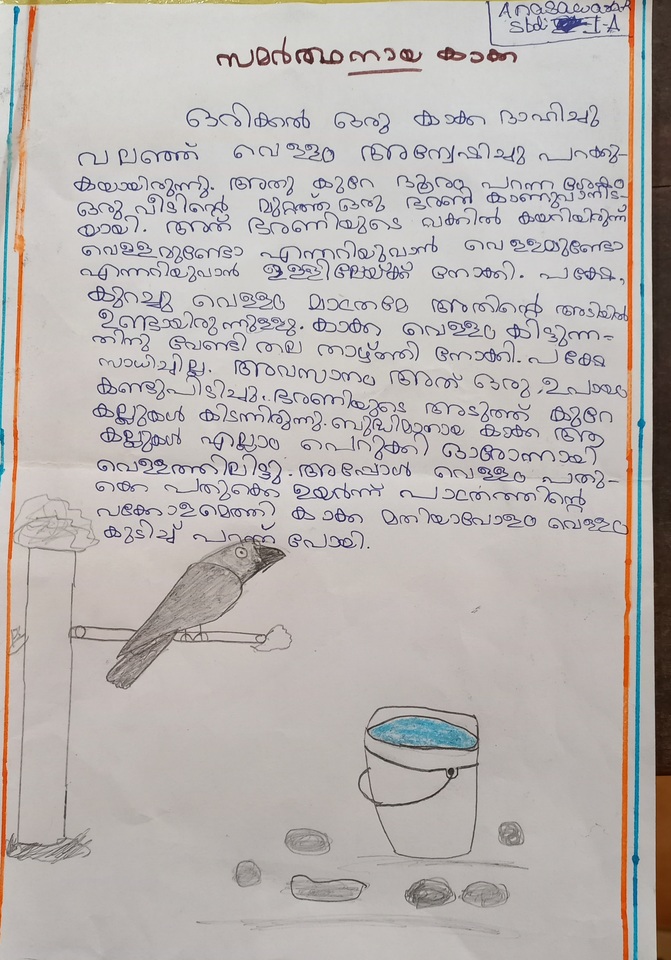 Anaswara
Std: I-A
സമർത്ഥനായ കാക്ക
ഒരിക്കൽ ഒരു കാക്ക ദാഹിച്ചു
വലഞ്ഞ് വെള്ളം അന്വേഷിച്ചു പറക്കു-
കയായിരുന്നു. അതു കുറേ ദൂരം പറന്ന ശേഷം
ഒരു വീടിന്റെ മുറ്റത്ത് ഒരു ഭരണി കാണുവാനിട-
യായി. അത് ഭരണിയുടെ വക്കിൽ കയറിയിരുന്ന്
വെള്ളമുണ്ടോ എന്നറിയുവാൻ വെള്ളമുണ്ടോ
എന്നറിയുവാൻ ഉള്ളിലേയ്ക്ക് നോക്കി. പക്ഷേ,
കുറച്ചു വെള്ളം മാത്രമേ അതിന്റെ അടിയിൽ
ഉണ്ടായിരുന്നുള്ളു. കാക്ക വെള്ളം കിട്ടുന്ന-
തിനു വേണ്ടി തല താഴ്ത്തി നോക്കി. പക്ഷേ
സാധിച്ചില്ല. അവസാനം അത് ഒരു ഉപായം
കണ്ടുപിടിച്ചു. ഭരണിയുടെ അടുത്ത് കുറേ
കല്ലുകൾ കിടന്നിരുന്നു. ബുദ്ധിമാനായ കാക്ക ആ
കല്ലുകൾ എല്ലാം പെറുക്കി ഓരോന്നായി
വെള്ളത്തിലിട്ടു. അപ്പോൾ വെള്ളം പതു-
ക്കെ പതുക്കെ ഉയർന്ന് പാത്രത്തിന്റെ
വക്കോളമെത്തി കാക്ക മതിയാവോളം വെള്ളം
കുടിച്ച് പറന്ന് പോയി.